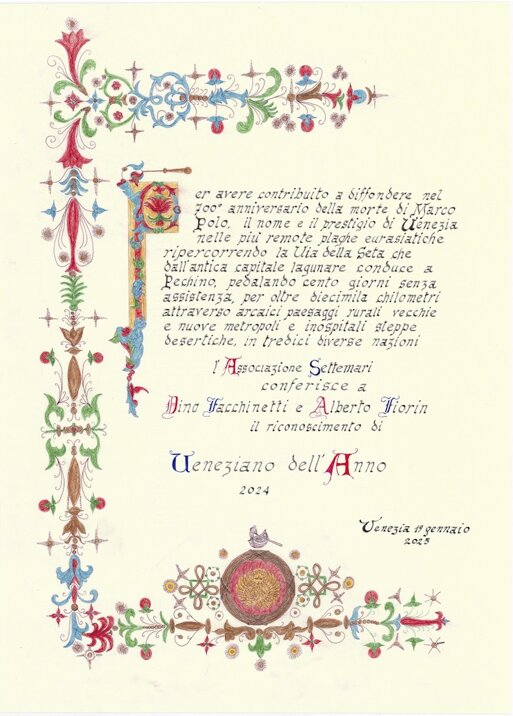 Per avere contribuito a diffondere nel
700° anniversario della morte di Marco
Polo, il nome e il prestigio di Venezia
nelle più remote plaghe eurasiatiche
ripercorrendo la Via della Seta che
dall'antica capitale lagunare conduce a
Pechino, pedalando cento giorni senza
assistenza, per oltre diecimila chilometri
attraverso arcaici paesaggi rurali vecchie
e nuove metropoli e inospitali steppe
desertiche, in tredici diverse nazioni
l'Associazione Settemari
conferisce a
Dino Facchinetti e Alberto Fiorin
il riconoscimento di
Veneziano dell'Anno
2024
Venezia 19 gennaio
2025